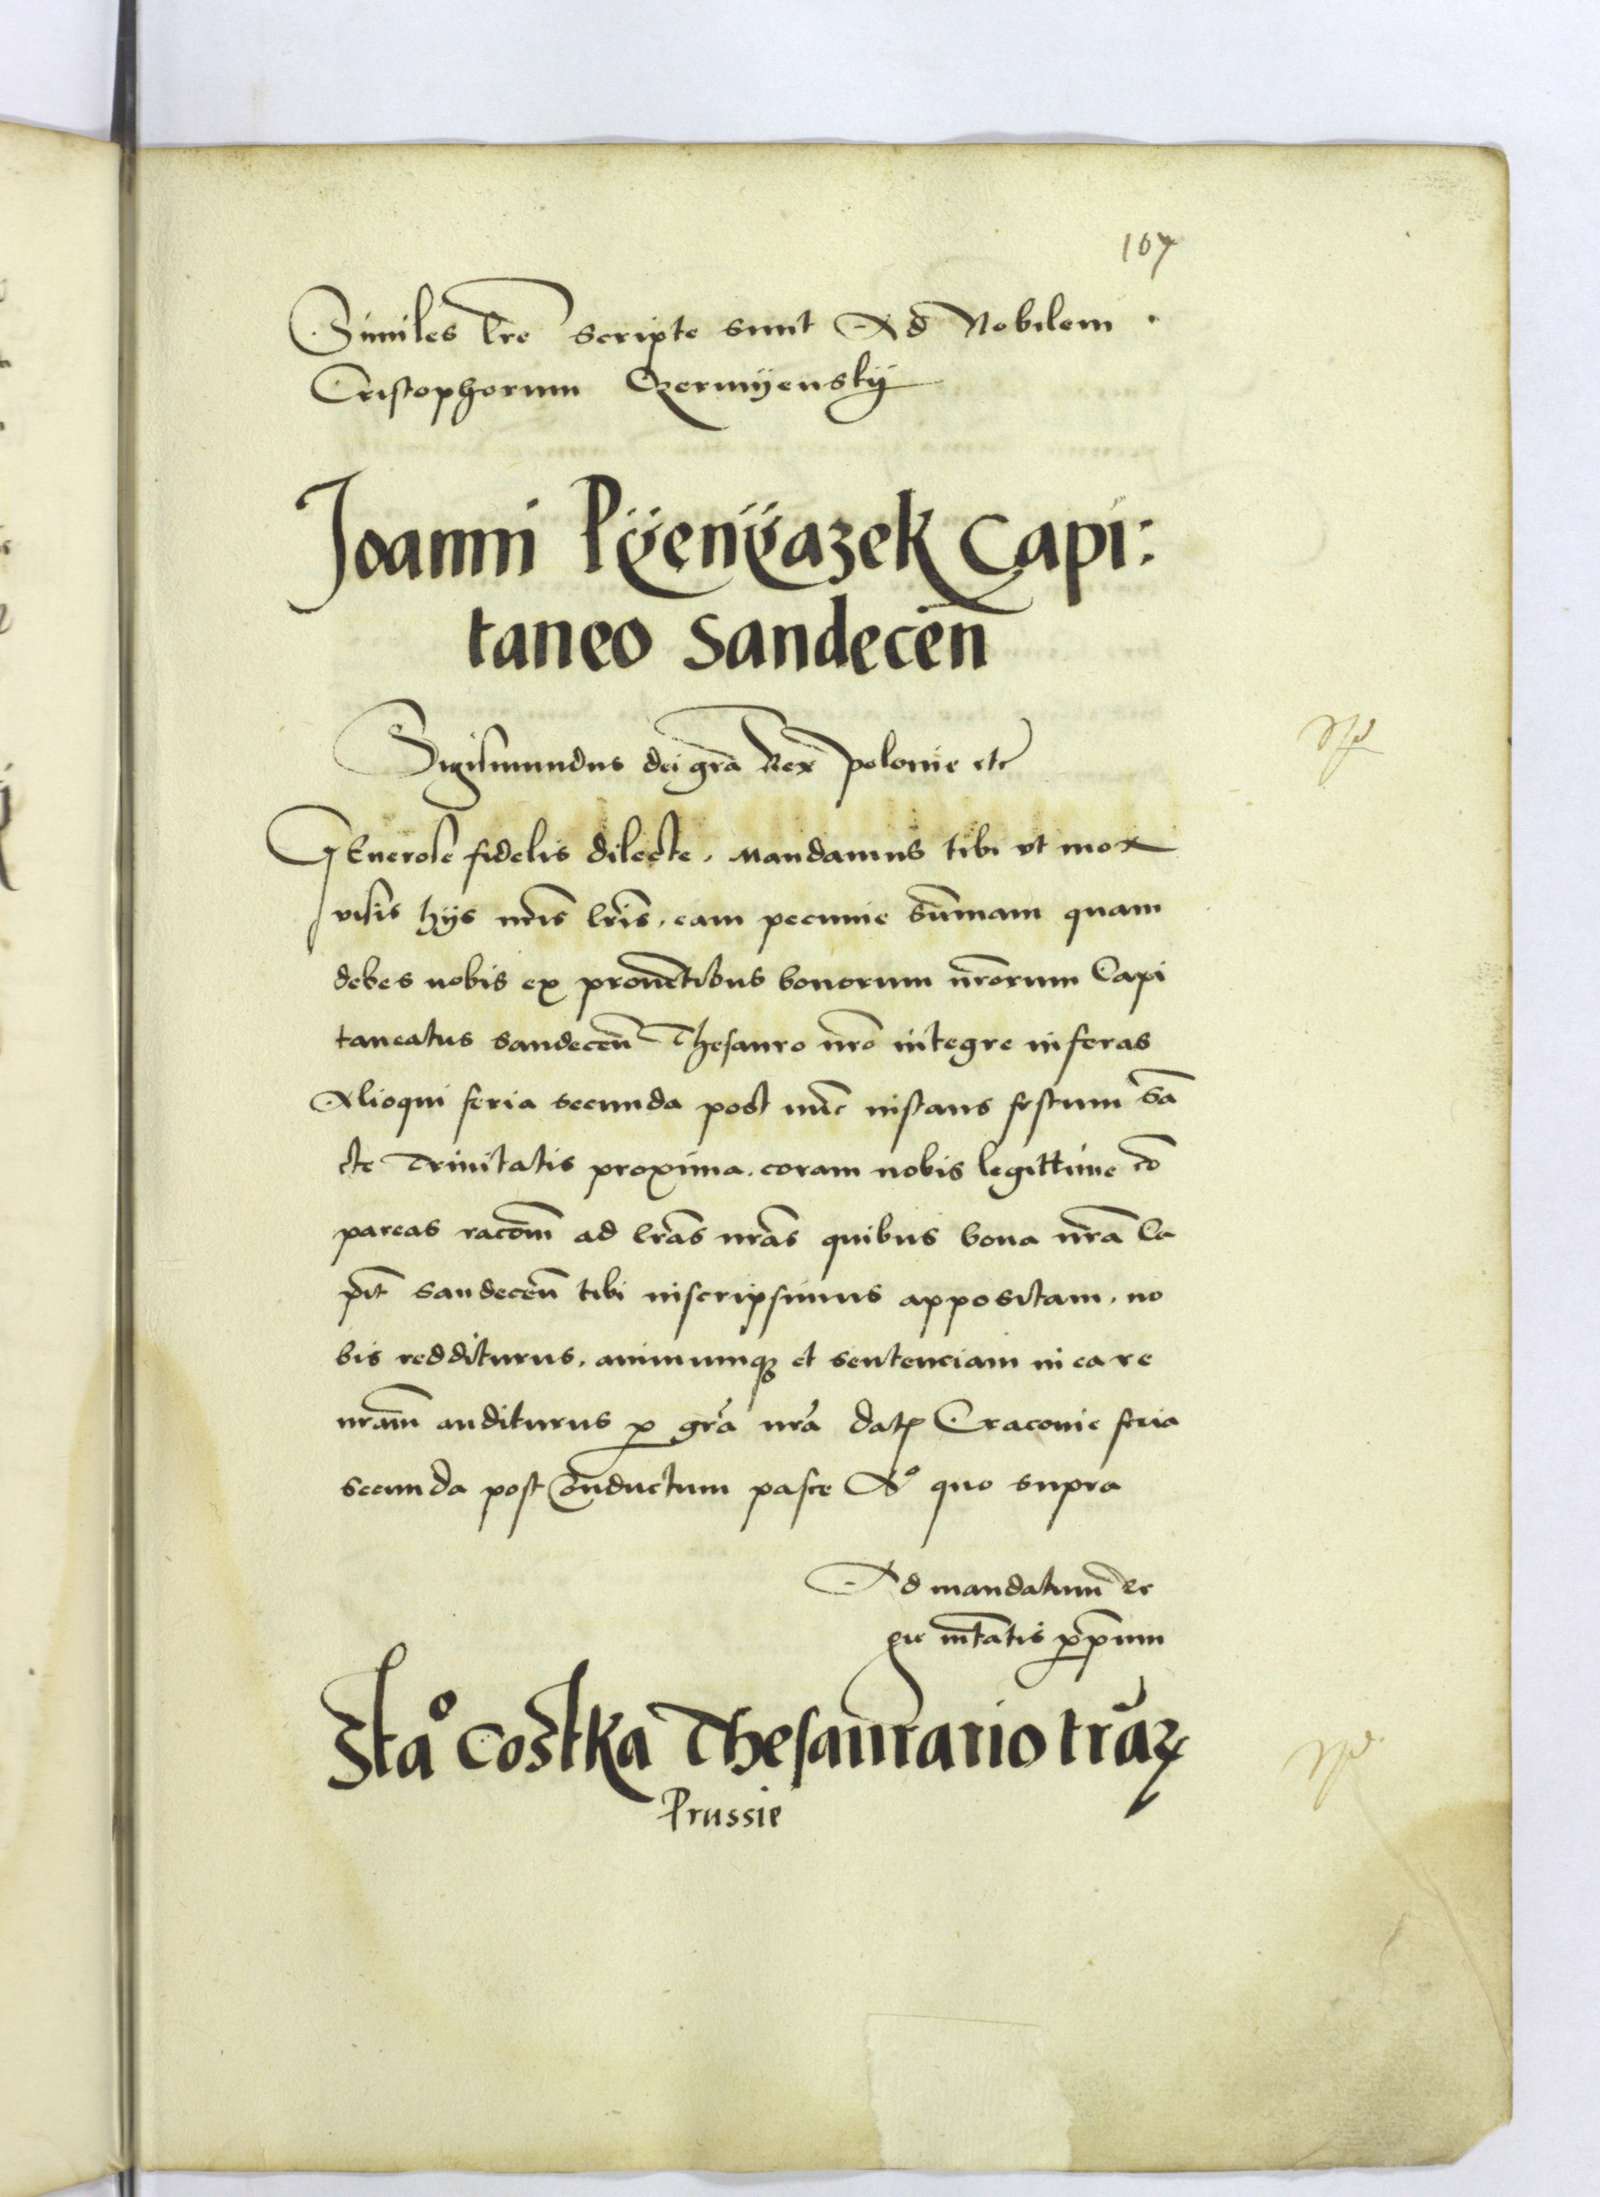 107
Similes lre scripte sunt Ad Nobilem
Cristophorum Czermyensky
Joanni Pÿenÿazek Capi:
taneo Sandecen̄
Sigismundus dei gra Rex polonie etc
GEnerose fidelis dilecte. Mandamus tibi vt mox
visis hijs nris lris. eam pecunie sūmam quam
debes nobis ex prouētibus bonorum nrorum Capi
taneatus Sandecen̄ Thesauro nro integre inferas
Alioqui feria secunda post nūc instans festum Sā
cte Trinitatis proxima. coram nobis legittime cō
pareas racōm ad lras nras quibus bona nra Ca
pit Sandecen̄ tibi inscripsimus appositam. no
bis redditurus. animumqꝫ et sentenciam in ea re
nram auditurus p gra nra dat Cracouie feria
secunda post Cōnductum pasce Aº quo supra
Ad mandatum Re
gie mtatis ppium
Staº Costka Thesaurario trāꝝ
Prussie